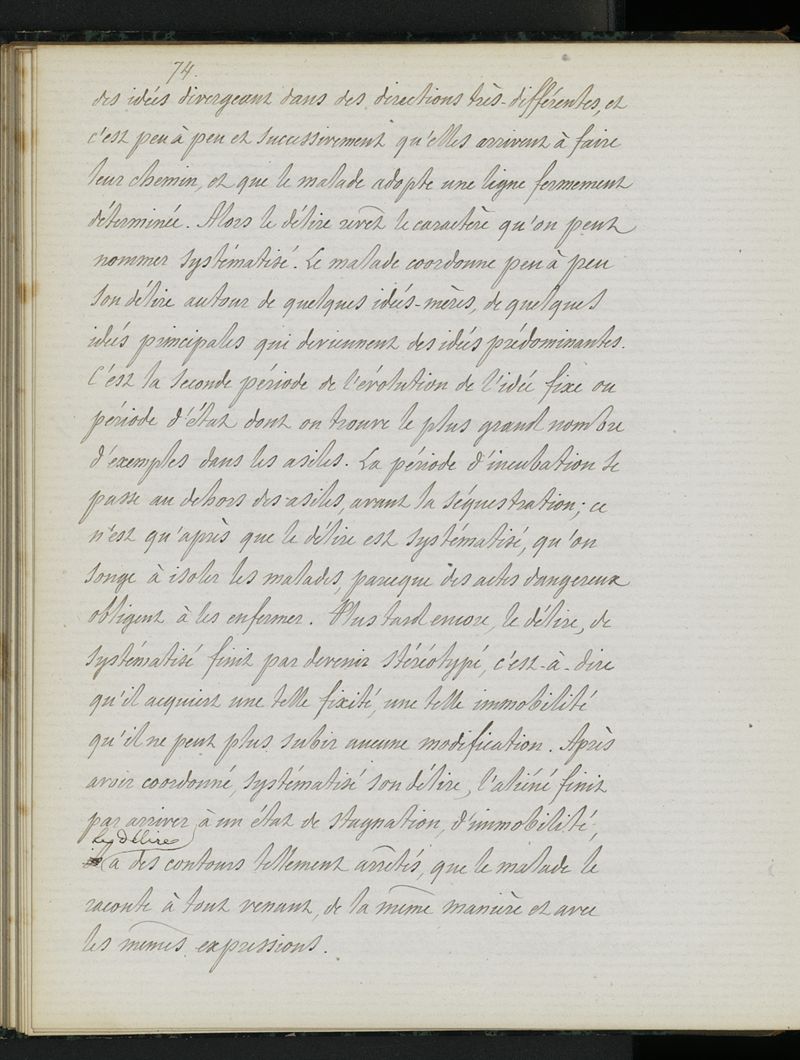 74.
des idées divergeant dans des directions très-différentes, et
c'est peu à peu et successivement qu'elles arrivent à faire
leur chemin, et que le malade adopte une ligne fermement
déterminée. Alors le délire revêt le caractère qu'on peut
nommer systématisé. Le malade coordonne peu à peu
son délire autour de quelques idées-mères, de quelques
idées principales qui deviennent des idées prédominantes.
C'est la seconde période de l'évolution de l'idée fixe ou
période d'état dont on trouve le plus grand nombre
d'exemples dans les asiles. La période d'incubation se
passe au dehors des asiles, avant la séquestration; ce
n'est qu'après que le délire est systématisé, qu'on
songe à isoler les malades, parceque des actes dangereux
obligent à les enfermer. Plus tard encore, le délire, de
systématisé finit par devenir stéréotypé, c'est-à-dire
qu'il acquiert une telle fixité, une telle immobilité
qu'il ne peut plus subir aucune modification. Après
avoir coordonné, systématisé son délire, l'aliéné finit
par arriver à un état de stagnation, d'immobilité,
Le Délire
a des contours tellement arrêtés, que le malade le
raconte à tout venant, de la même manière et avec
les mêmes expressions.